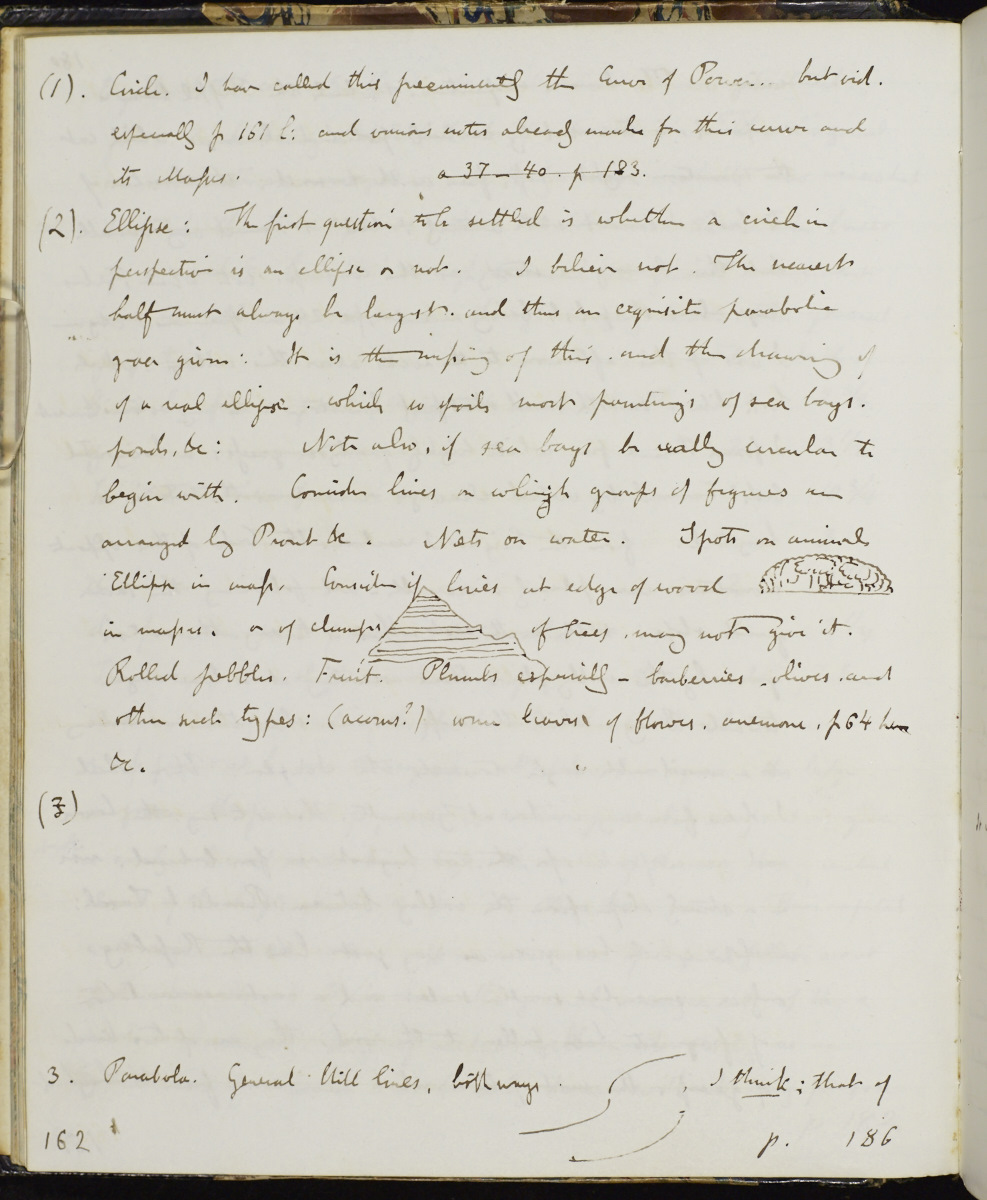 (1). Circle. I have called this preeminently the Curve of Power.. but vid.
especially p 161 l: and various notes already made for this curve and
its Masses. a 37 - 40. p 183.
(2). Ellipse: The first question to be settled is whether a circle in
perspective is an ellipse or not. I believe not. The nearest
half must always be largest. and thus an exquisite parabolic
given: It is the missing of this. and the drawing of
of a real ellipse. which so spoils most paintings of sea bays.
ponds, &c: Note also, if sea bays be really circular to
begin with. Consider lines on which groups of figures are
arranged by Prout &c. Nets on water. Spots on animals
Ellipse in mass. Consider if lines at edge of wood
in masses. or of clumps of trees, may not give it.
Rolled pebbles. Fruit. Plumbs especially - barberries, olives. and
other such types: (acorns?) some leaves of flower. anemone. p 64
&c.
(3)
3. Parabola. General Hill lines, both ways. I think: that of
162 p. 186